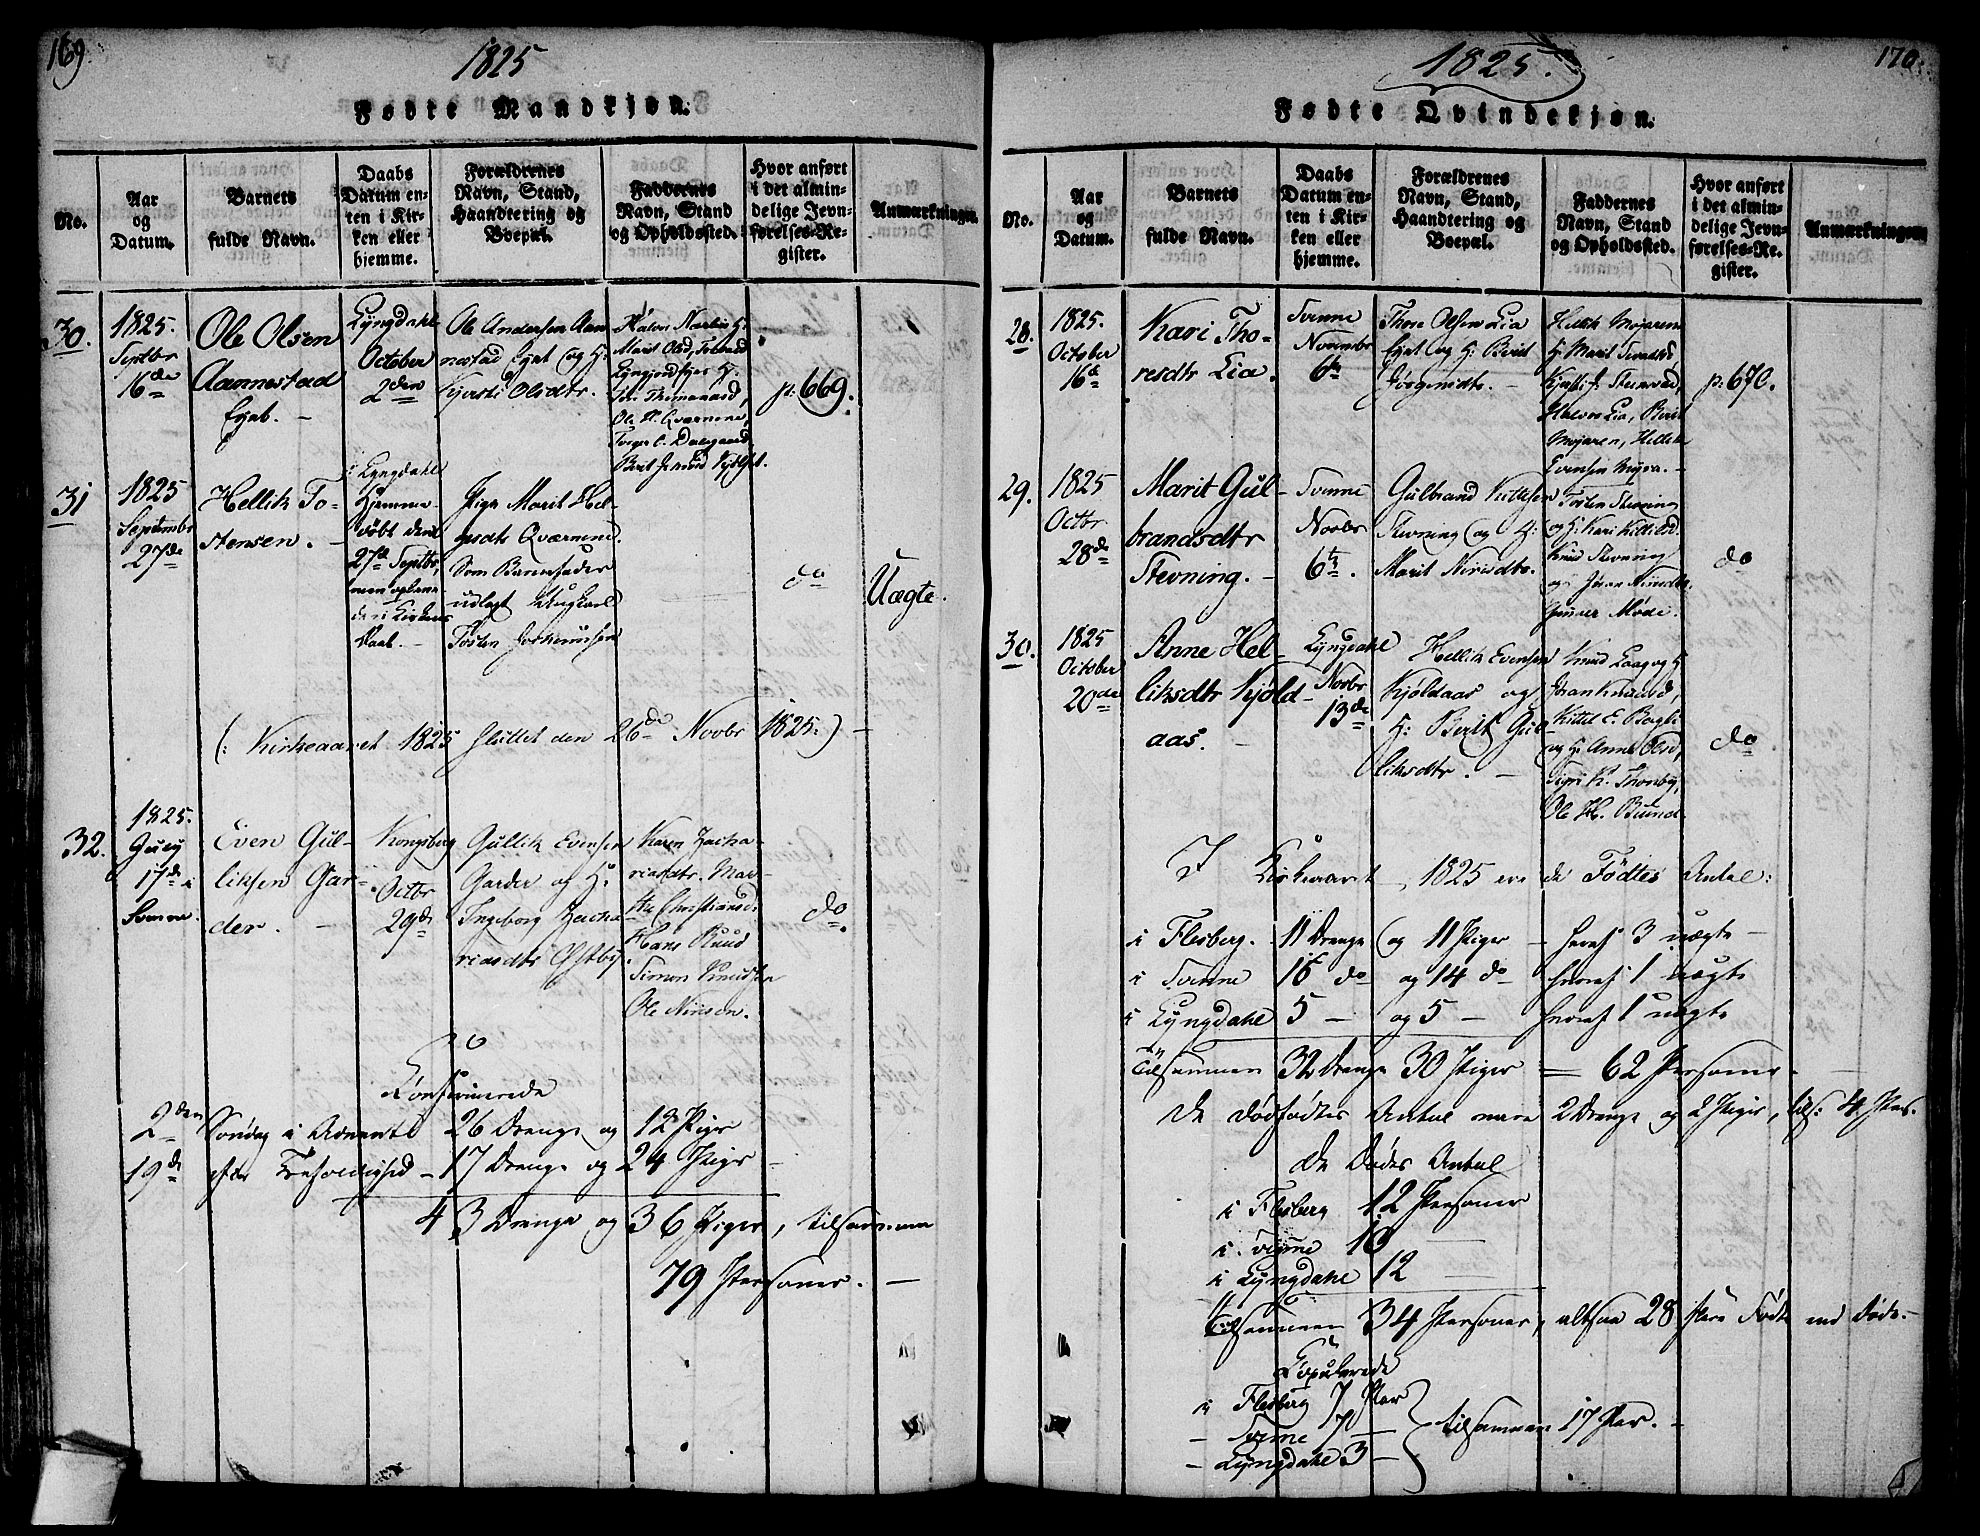 169.
1825
Fødte Mandkjøn.
No.
Aar
og
Datum.
Barnets
fulde Navn.
Daabs
Datum en-
ten i Kir-
ken eller
hjemme.
Forældrenes
Navn, Stand,
Haandtering og
Boepæl.
Faddernes
Navn, Stand
og Opholdssted.
Hvor anført
i det almin-
delige Jevn-
førelses-Re-
gister.
Anmærkninger.
30.
1825.
Septbr
16de
Ole Olsen
Aannestad
Eyeb. -
Lyngdahl
October
2den
Ole Andersen Aan
nestad Eyeb og H:
Kjersti Olsdtr.
Marit Olsd,
Ole H. Qværnene,
p: 669.
31
1825
Septembr
27de
Hellik To-
stensen. -
i Lyngdahl
Hjemme-
døbt den
27de Septbr,
Daab. -
Pige Marit Hel-
gesdtr Qværnene.
Som Barnefader
udlagt Ungkarl
Tosten
do
Uægte.
(: Kirkeaaret 1825 sluttet den 26de Novbr 1825:) -
32.
1825.
July
17de i
Svenne.
Even Gül-
liksen Gar-
der. -
Kongsberg
Octbr
29de
Güllik Evensen
Garder og H:
Ingeborg Zacha-
riasdtr Østby.
Karen Zacha-
riasdtr. Mar-
the Christiansd:
Hans Ruud
Simen Knudsen
Ole Nirisen.
do.
Confirmerede
2den Søndag i Advent 26 Drenge og 12 Piger
19de efter Trefoldighed - 17 Drenge og 24 Piger
43 Drenge og 36 Piger, tilsammen
79 Personer. -
170.
1825.
Fødte Qvindekjøn.
No.
Aar
og
Datum.
Barnets
fulde Navn.
Daabs
Datum en-
ten i Kir-
ken eller
hjemme.
Forældrenes
Navn, Stand,
Haandtering og
Boepæl.
Faddernes
Navn, Stand
og Opholdssted.
Hvor anført
i det almin-
delige Jevn-
førelses-Re-
gister.
Anmærkninger.
28.
1825.
October
16de
Kari Tho-
resdtr Lia.
Svenne
Novembr
6te
Thore Olsen Lia
Eyeb og H: Berit
Jørgensdtr. -
Hellik Mojaren
H: Marit
Halvor Lia, Berit
Mojaren, Hellik
Evensen Myra. -
p: 670.
29.
1825
Octbr
28de
Marit Gül-
brandsdtr
Stevning. -
Svenne
Novbr
6te.
Gülbrand
Stevning og H:
Marit Nirisdtr.
Tosten Stevning
og H: Kari
Knud Stevning
Gunner Mode.
do
30.
1825
October
20de
Anne Hel-
liksdtr Kjøld-
aas. -
Lyngdahl
Novbr
13de
Hellik Evensen
Kjøldaas og
H: Berit Gül-
liksdtr. -
Knud Laag og H:
Kittil E.
og H: Anne Olsd,
Ole H.
do
I Kirkeaaret 1825 ere de Fødtes Antal:
i Flesberg. 11 Drenge og 11 Piger - hvoraf 3 uægte -
i Svenne 16 do og 14 do - hvoraf 1 uægte
i Lyngdahl 5 - og 5 - hvoraf 1 uægte
Tilsammen 32 Drenge 30 Piger = 62 Personer -
De dødfødtes Antal vare 2 Drenge og 2 Piger, tils: 4 Pers.
De Dødes Antal
i Flesberg 12 Personer
i Svenne 10
i Lyngdahl 12
tilsammen 34 Personer, altsaa 28 flere Fødte end Døde. -
Copulerede
i Flesberg 7 Par
- Svenne 7 -
- Lyngdahl 3 -
tilsammen 17 Par. -